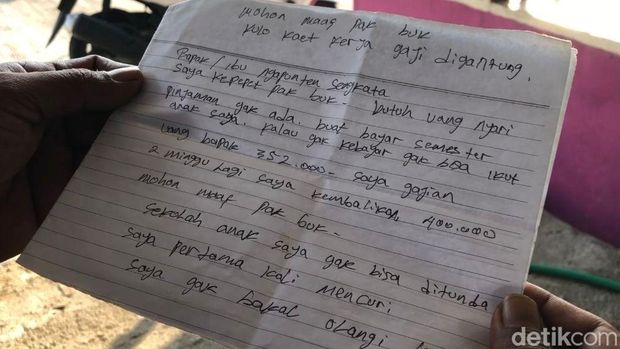 mohon maag pak buk
kulo kaet kerja gaji digantung.
Papak / ibu ngapunten sengkata
Saya kepepet pak buk - butuh uang nyari
pinjaman gak ada. buat bayar semester
anak saya. kalau gak kebayar gak bisa ikut
uang bapak 352.000- saya gajian
2 minggu lagi saya kembalikan 400.000
mohon maaf pak buk-
sekolah anak saya gak bisa ditunda
saya pertama kali mencuri
saya gak bakal olangi
detikcom